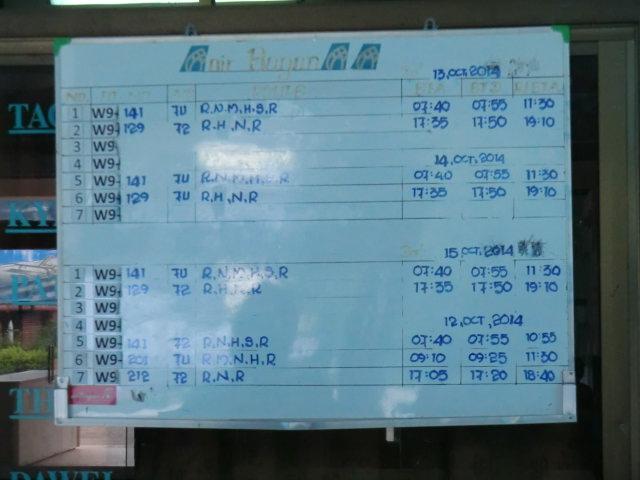 Air Bagan
13,OCT,2014
NO. ROUTE ETA ETD R/ETA
1 W9- 141 7U R,N,M,H,S,R 07:40 07:55 11:30
2 W9- 129 72 R,H,N,R 17:35 17:50 19:10
3 W9-
4 W9- 14,OCT,2014
5 W9- 141 7U R,N,M,H,S,R 07:40 07:55 11:30
6 W9- 129 72 R,H,N,R 17:35 17:50 19:10
7 W9-
15,OCT,2014
1 W9- 141 7U R,N,M,H,S,R 07:40 07:55 11:30
2 W9- 129 72 R,H,N,R 17:35 17:50 19:10
3 W9-
4 W9- 12,OCT,2014
5 W9- 141 72 R,N,H,S,R 07:40 07:55 10:55
6 W9- 201 7U R,M,N,H,R 09:10 09:25 11:30
7 W9- 212 72 R,N,R 17:05 17:20 18:40